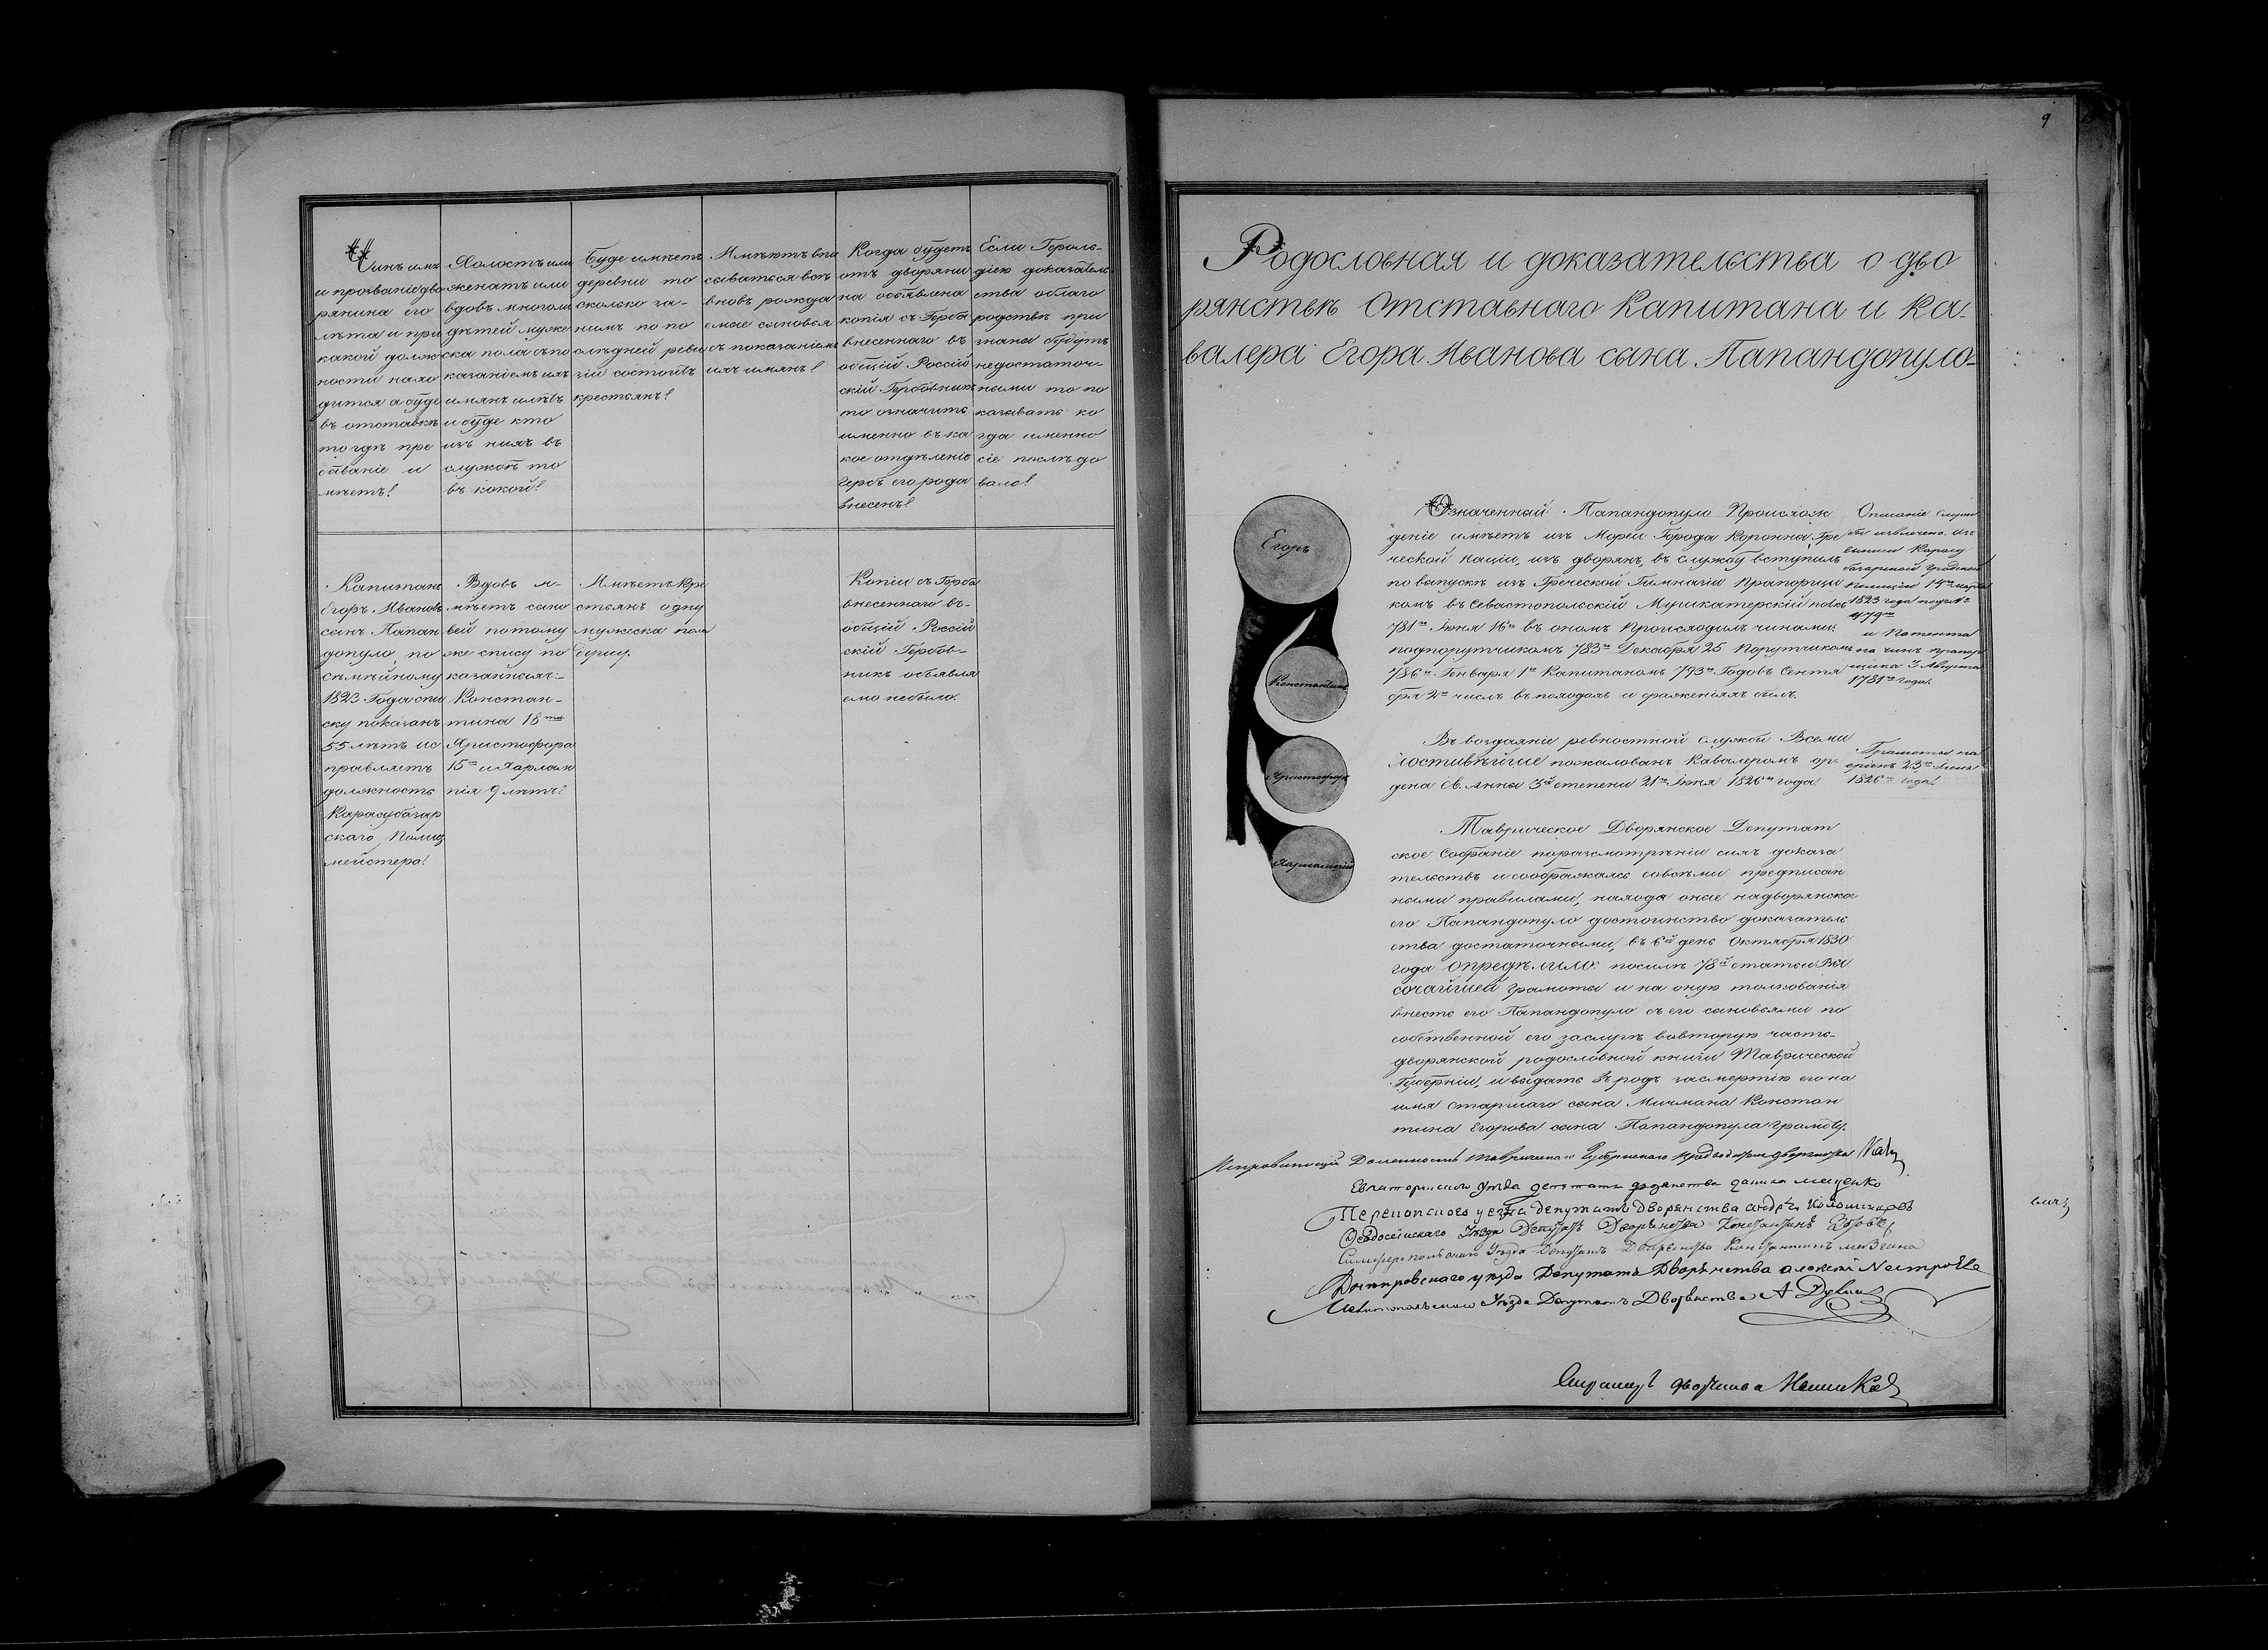 Чинъ имя
и прозваніе дво
рянина его
лѣта и при
какой долж
ности нахо
дится а буде
въ отставкѣ
то гдѣ пре
бываніе и
мѣетъ!
Холостъ или
женатъ или
вдовъ многоли
дѣтей муже
ска пола съ по
казаніемъ ихъ
имянъ и лѣтъ
и буде кто
изъ нихъ въ
службѣ то
въ какой!
Буде имѣетъ
деревни то
сколько за-
нимъ по по
слѣдней реви
зіи состоитъ
крестьянъ!
Имѣютъ впи
сываться всѣ
вновь рожда
емые сыновья
съ показаніемъ
ихъ имянъ!
Когда будетъ
отъ дворяни
на объявлена
копія съ Герба
внесеннаго въ
общій Россій
скій Гербовникъ
то означить
именно въ ка
кое отдѣленіе
Гербъ его рода
внесенъ!
Если Героль-
діею доказатель
ства облаго
родствѣ при
знаны будутъ
недостаточ-
ными то по
казывать ко
гда именно
сіе послѣдо
вало!
Капитанъ
Егоръ Ивановъ
сынъ Папан
допуло, по
сѣмѣйному
1823 Года спи
ску показанъ
55 лѣтъ ис
правляетъ
должность
Карасубазар
скаго Полиц
мейстера!
Вдовъ и-
мѣетъ сыно
вей потому
же спису по
казанныхъ:-
Констан-
тина 18ти
Христофора
15ти и Харлам
пія 9 лѣтъ!
Имѣетъ Кре
стьянъ одну
мужеска пола
душу.
Копіи съ Герба
внесеннаго въ-
общій Россій
скій Гербов-
никъ объявля
емо небыло.
9
Родословная и доказательства о дво
рянствѣ Отставнаго Капитана и Ка-
валера Егора Иванова сына Папандопуло-
Егоръ
Константинъ
Христофоръ
Харлампій
Означенный Папандопуло Происхож
деніе имѣетъ изъ Мореи Города Коронна Гре
ческой Націи, изъ дворянъ, въ службу вступилъ
по выпускѣ изъ Греческой Гимназіи Прапорщи
комъ въ Севастопольскій Мушкатерскій полкъ
781го Іюня 16го въ ономъ Происходилъ чинами:
подпорутчикомъ 783го Декабря 25 Порутчикомъ
786го Генваря 1го Капитаномъ 793го Годовъ Сентя
бря 2го числъ въ походахъ и сраженіяхъ былъ.
Описаніе служ
бы извлечено изъ
выписи Карасу
базарской Градской
Полиціи 14го марта
1823 года подъ №
479мъ
и Патента
на чинъ прапор
щика 3 Августа
1781го года.
Въ воздаяніе ревностной службы Всеми
лостивѣйше пожалованъ Кавалеромъ ор-
дена Св. Анны 3й степени 21го Іюня 1826го года.
Грамоты на
орденъ 23го Іюня
1826го года.
Таврическое Дворянское Депутат
ское Собраніе поразсмотрѣніи сихъ доказа
тельствъ и соображаясь совсѣми предписан
ными правилами, находя оныя надворянское
его Папандопуло достоинство доказатель
ства достаточными, въ 6й день Октября 1830
года опредѣлило: посилѣ 78й статьи Вы
сочайшей грамоты и на оную толкованія
внесть его Папандопуло съ его сыновьями по
собственной его заслугѣ вовторую часть-
дворянской родословной книги Таврической
Губерніи, и выдать въ родъ засмертію его на
имя старшаго сына Мичмана Констан
тина Егорова сына Папандопула грамоту.
Исправляющій Должность Таврическаго Губернскаго предводителя дворянства
Евпаторийскаго Уѣзда депутатъ дворянства
Перекопского уезда депутатъ дворянства андрѣй
Феодосейскаго Уѣзда Депутатъ Дворянства Константинъ
Симферопольскаго Уѣзда Депутатъ Дворянства Константинъ
Днепровского уѣзда Депутатъ Дворянства алексей
Мелитопольскаго Уѣзда Депутатъ Дворянства А
Секретарь дворянства